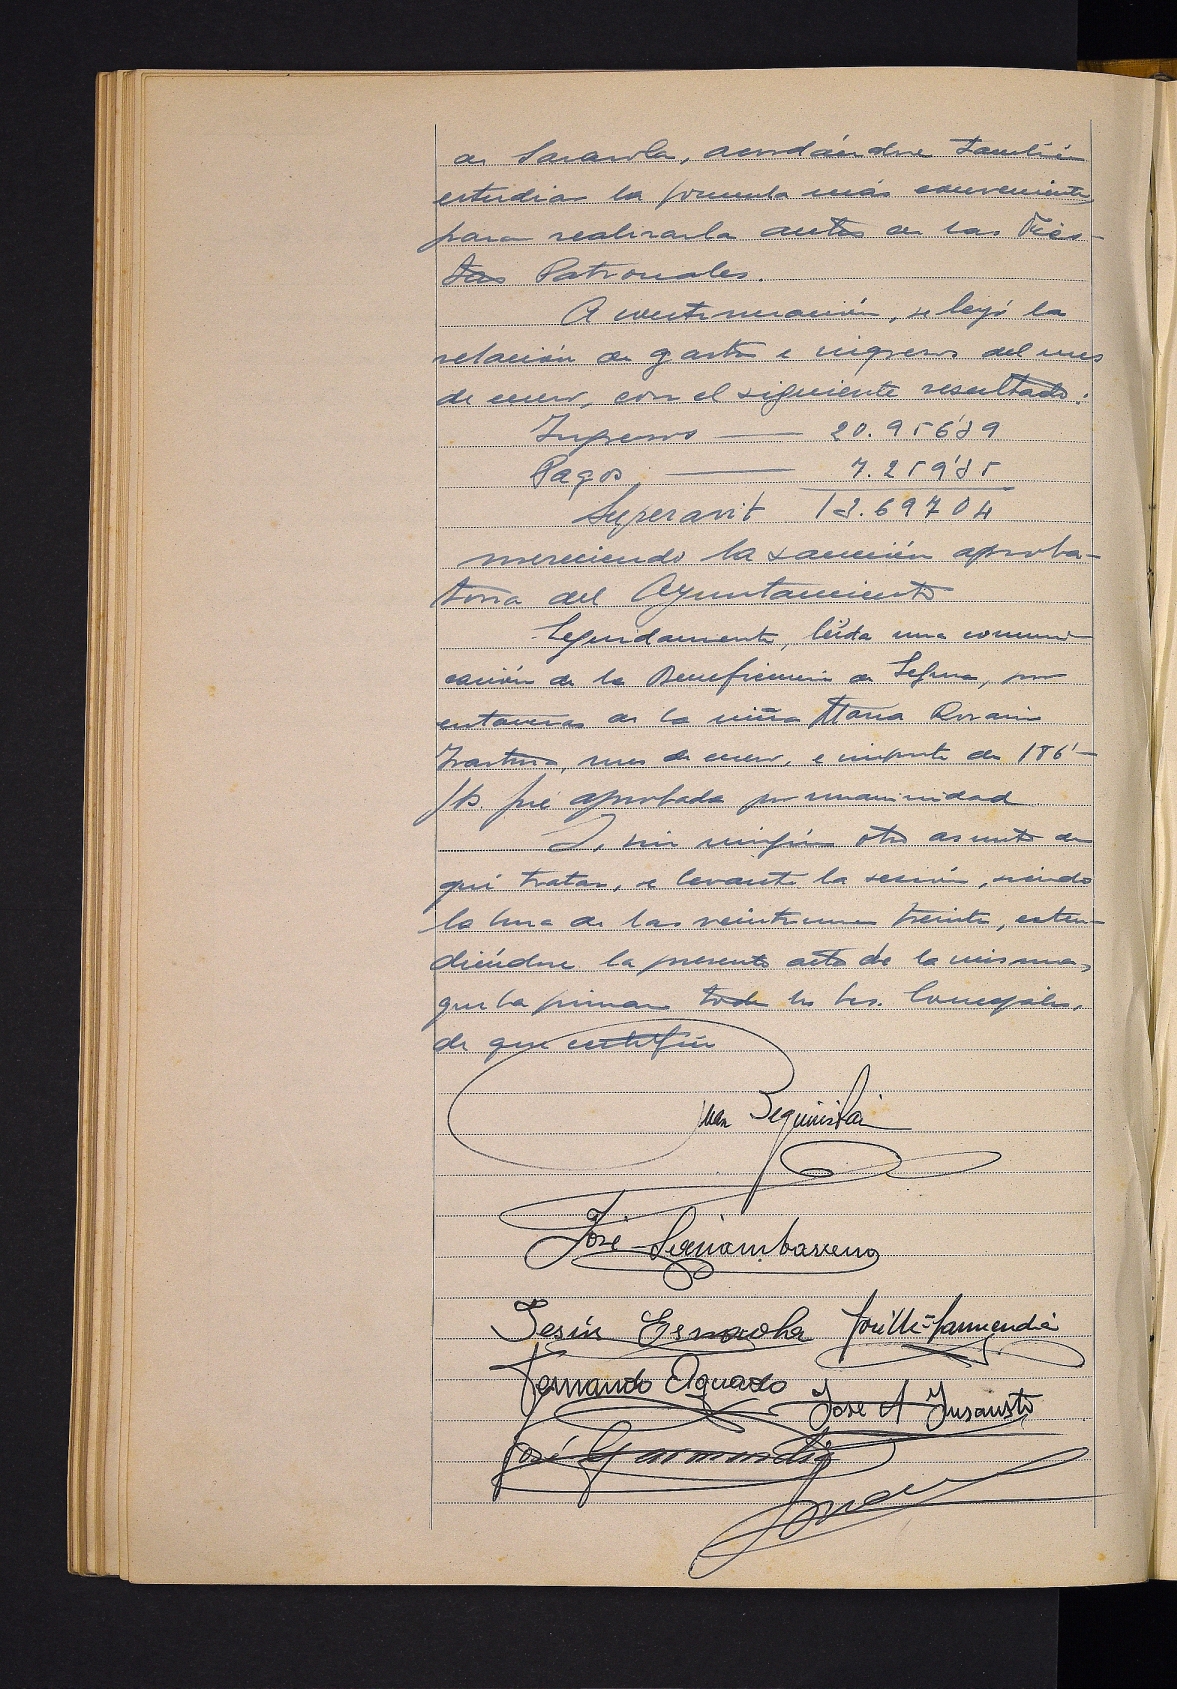 de Sarasola, acordándose también
estudiar la fórmula más conveniente,
para realizarla antes de las Fies-
tas Patronales.
A continuación, se leyó la
relación de gastos e ingresos del mes
de enero, con el siguiente resultado:
Ingresos — 20.956'89
Pagos — 7.259'85
Superavit 13.697 04
mereciendo la sanción aproba-
toria del Ayuntamiento
Seguidamente, leída una comuni-
cación de la Beneficencia de Segura, por
estancias de la niña María Rosario
mes de enero, e importe de 186'-
fué aprobada por unanimidad
Y, sin ningún otro asunto de
qué tratar, se levantó la sesión, siendo
la hora de las veintiuna treinta, exten-
diéndose la presente acta de la misma,
que la firman todos los Srs. Concejales,
de que certifico
Juan Beguiristain
José
Jesús José Mª Garmendia
Fernando Aguado
Jose A Insausti
José Garmendia